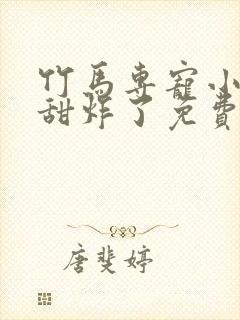 竹馬專寵小
甜炸了免費
唐斐婷